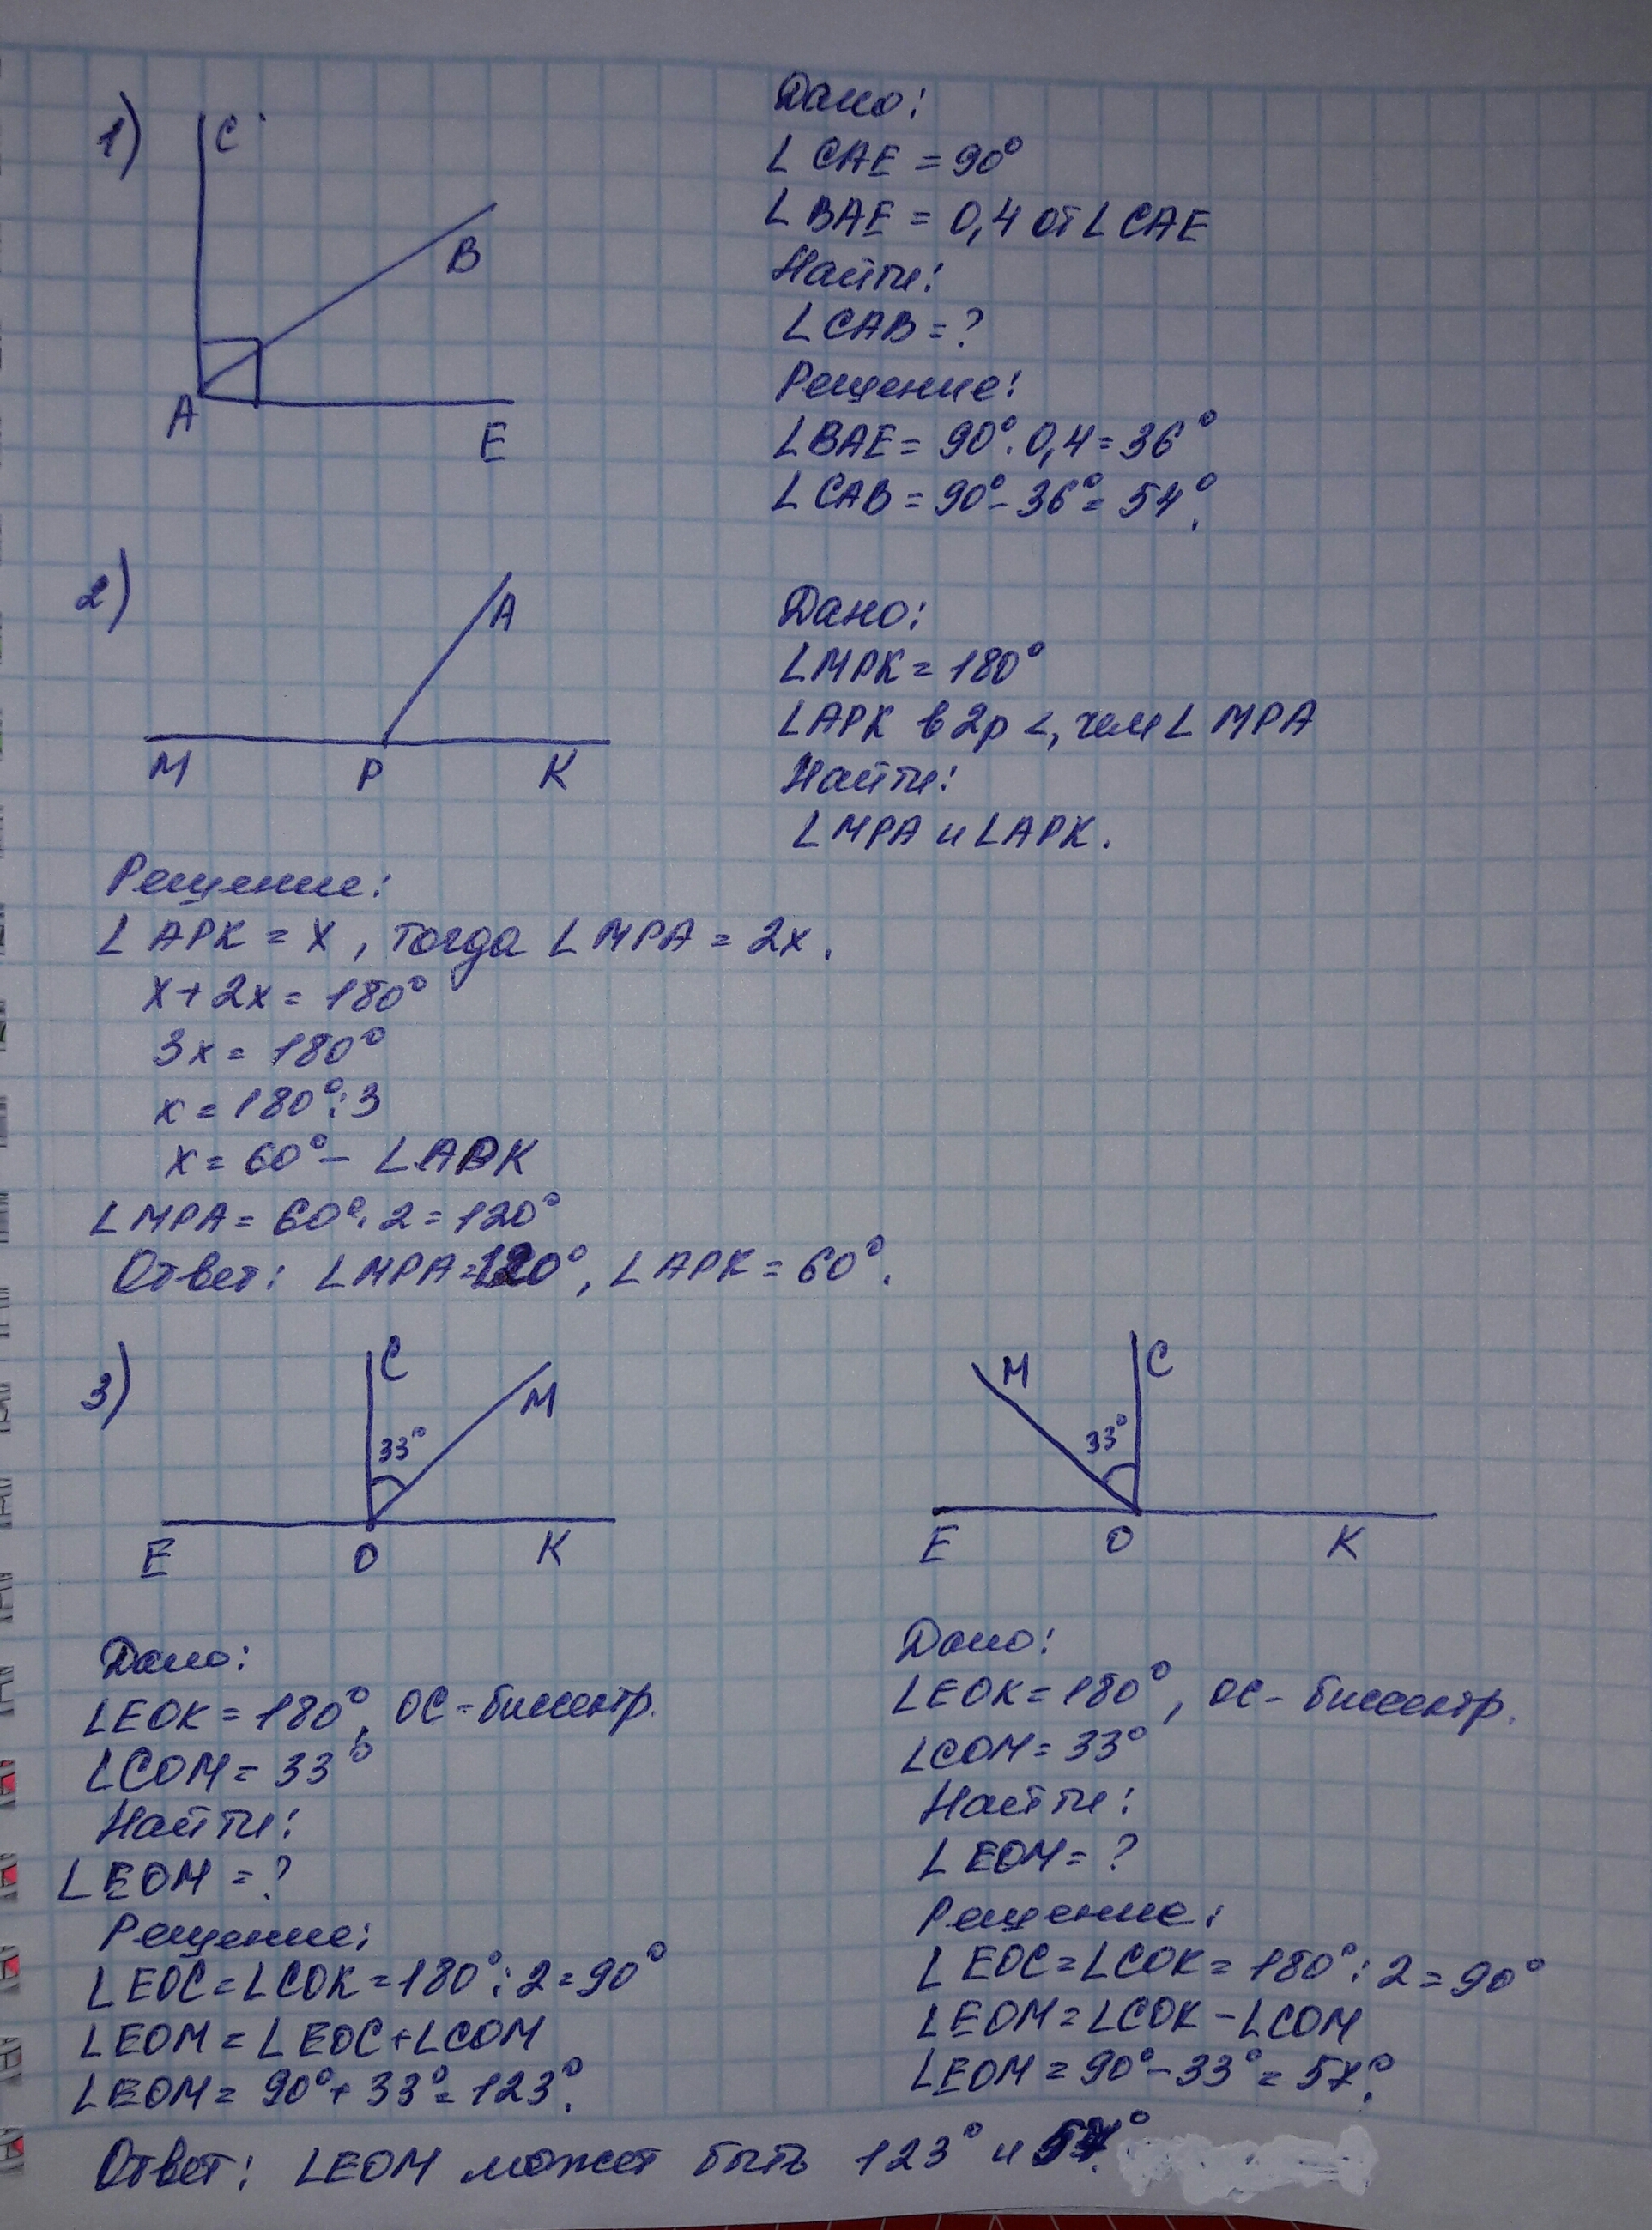 1)
C
B
A
E
Дано:
∠CAE = 90°
∠BAE = 0,4 от ∠CAE
Найти:
∠CAB = ?
Решение:
∠BAE = 90° · 0,4 = 36°
∠CAB = 90° - 36° = 54°.
2)
A
M P K
Дано:
∠MPK = 180°
∠APK в 2р <, чем ∠MPA
Найти:
∠MPA и ∠APK.
Решение:
∠APK = x, тогда ∠MPA = 2x.
x + 2x = 180°
3x = 180°
x = 180° : 3
x = 60° - ∠APK
∠MPA = 60° · 2 = 120°
Ответ: ∠MPA = 120°, ∠APK = 60°.
3)
C
M
33°
E O K
M
C
33°
E O K
Дано:
∠EOK = 180°, OC - биссектр.
∠COM = 33°
Найти:
∠EOM = ?
Решение:
∠EOC = ∠COK = 180° : 2 = 90°
∠EOM = ∠EOC + ∠COM
∠EOM = 90° + 33° = 123°.
Дано:
∠EOK = 180°, OC - биссектр.
∠COM = 33°
Найти:
∠EOM = ?
Решение:
∠EOC = ∠COK = 180° : 2 = 90°
∠EOM = ∠COK - ∠COM
∠EOM = 90° - 33° = 57°.
Ответ: ∠EOM может быть 123° и 57°.